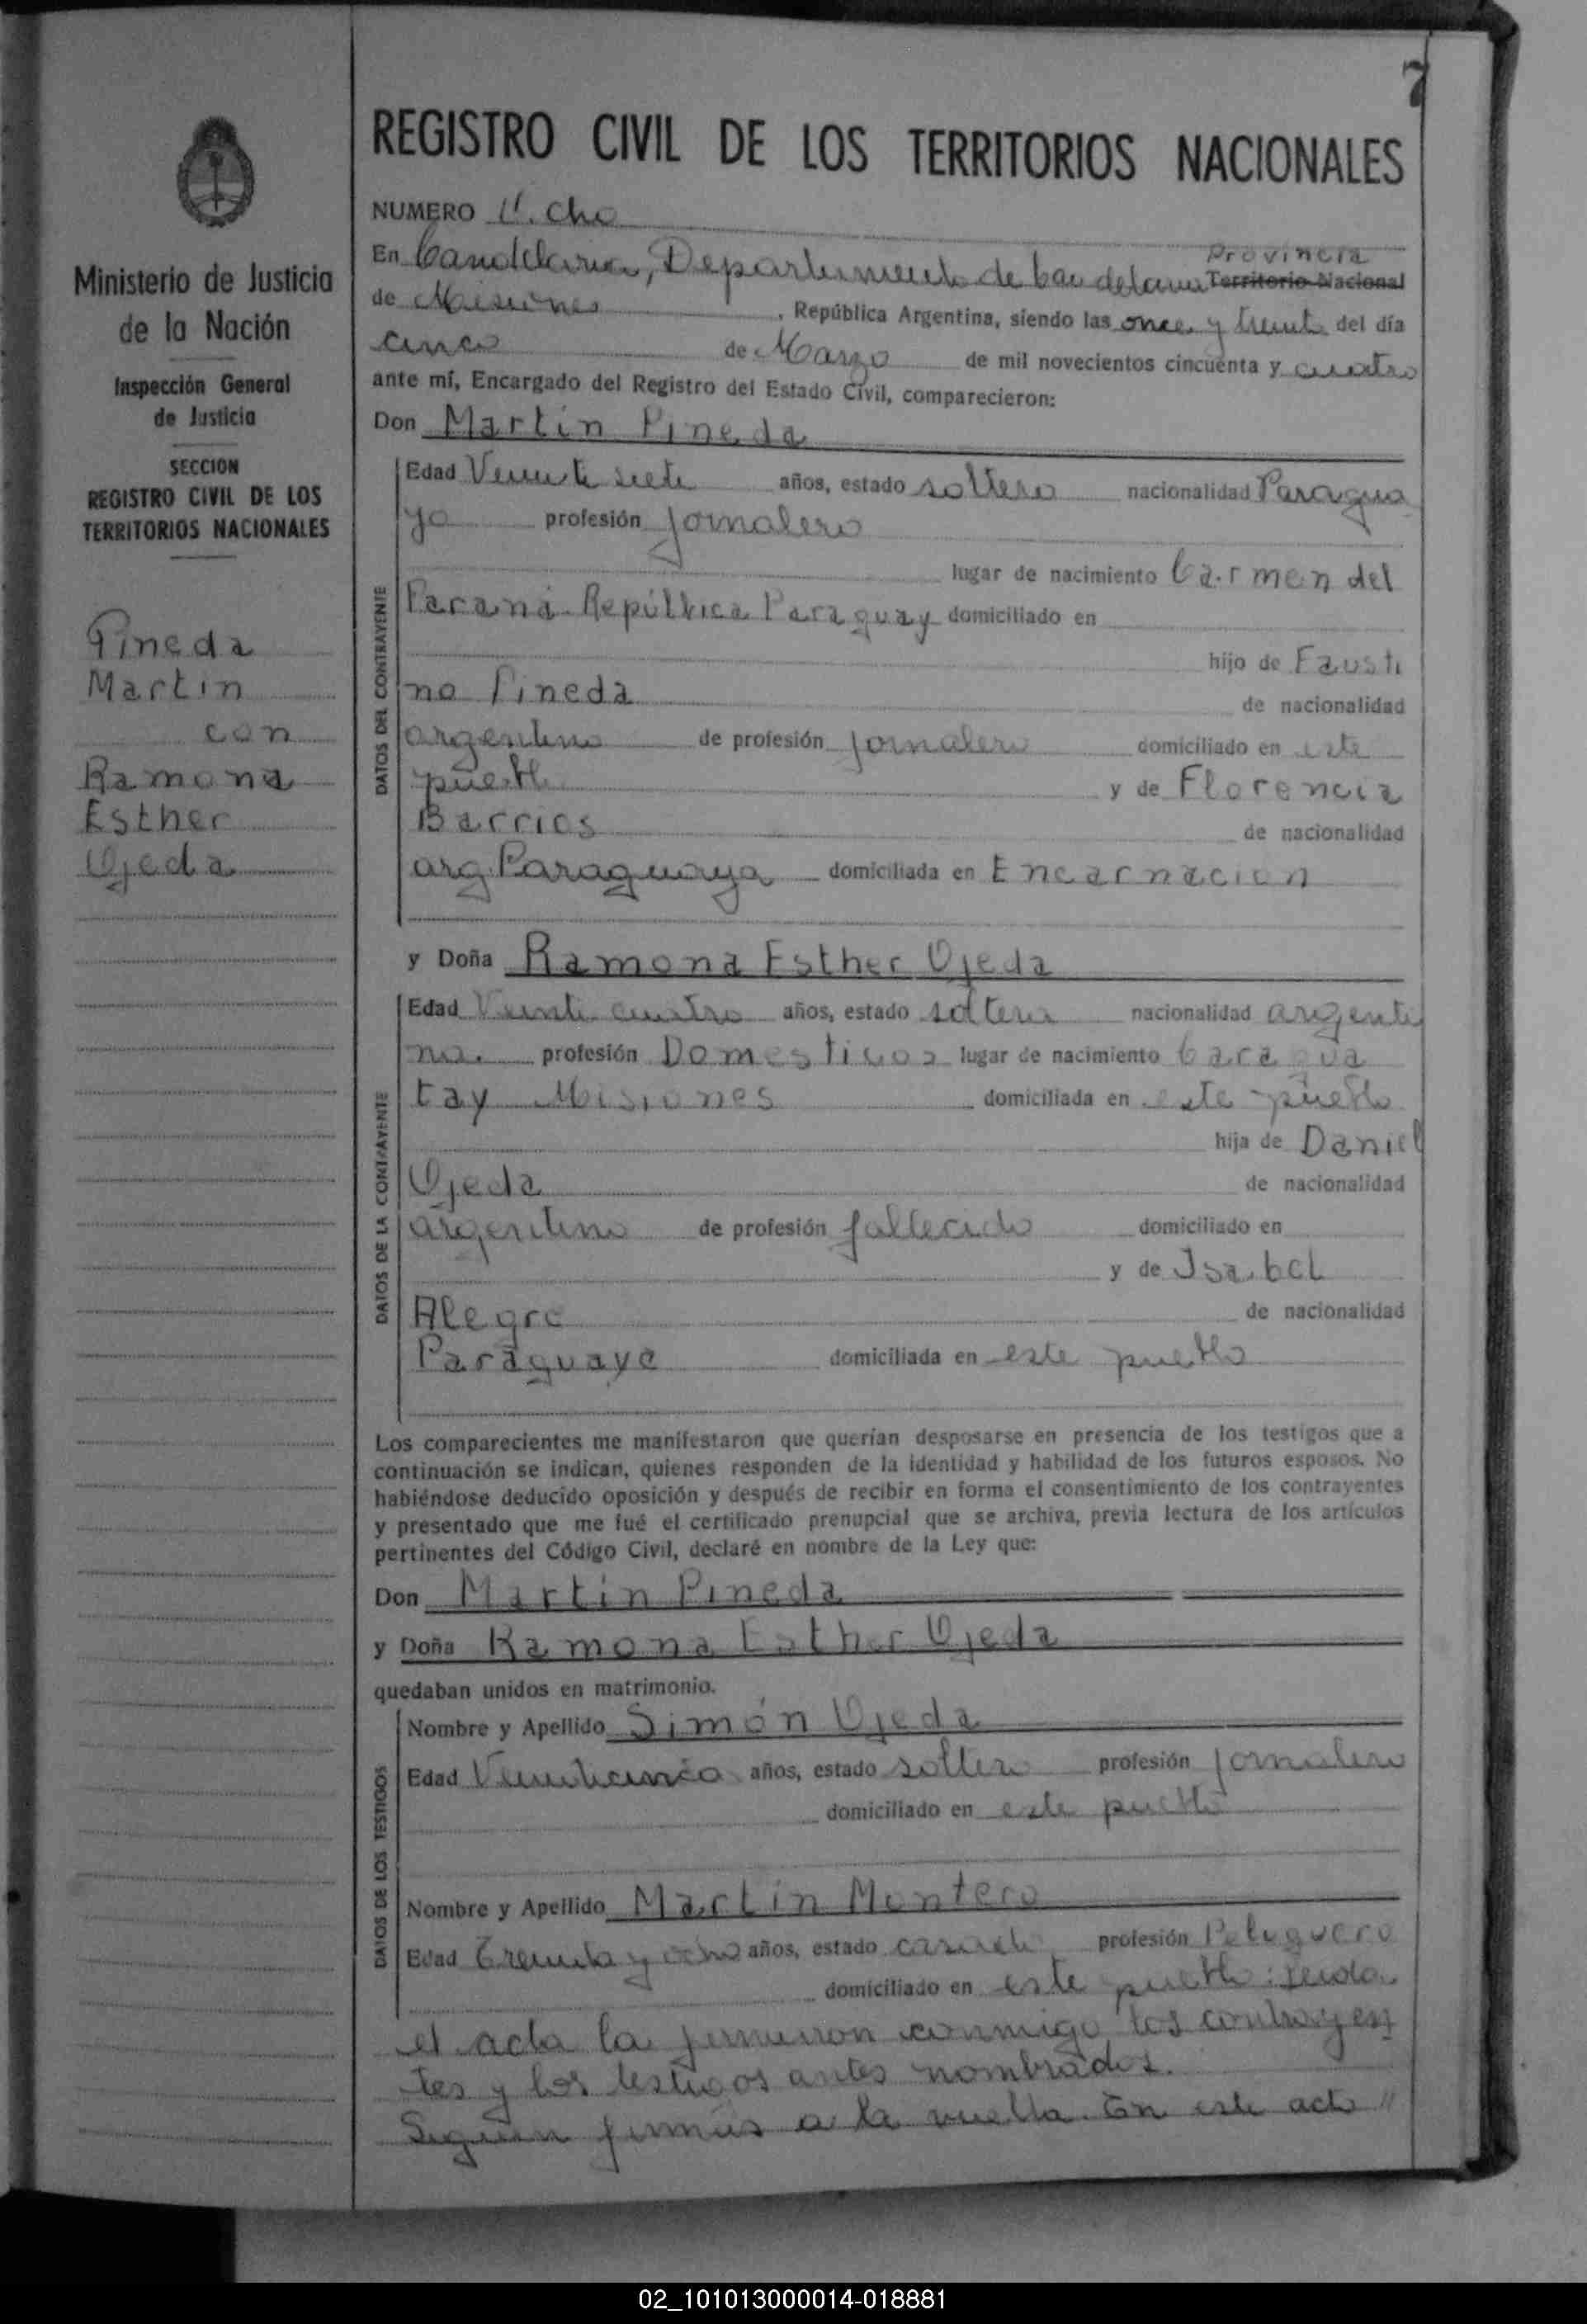 7
REGISTRO CIVIL DE LOS TERRITORIOS NACIONALES
Ministerio de Justicia
de la Nación
Inspección General
de Justicia
SECCION
REGISTRO CIVIL DE LOS
TERRITORIOS NACIONALES
Pineda
Martin
con
Ramona
Esther
Ojeda
NUMERO Ocho
Provincia
En Candelaria, Departamento de Candelaria Territorio Nacional
de Misiones, República Argentina, siendo las once y treinta del día
cinco de Marzo de mil novecientos cincuenta y cuatro
ante mí, Encargado del Registro del Estado Civil, comparecieron:
Don Martín Pineda
DATOS DEL CONTRAYENTE
Edad Veinte siete años, estado soltero nacionalidad Paragua
yo profesión Jornalero
lugar de nacimiento Carmen del
Paraná República Paraguay domiciliado en
hijo de Fausti
no Pineda de nacionalidad
argentino de profesión Jornalero domiciliado en este
pueblo y de Florencia
Barrios de nacionalidad
arg. Paraguaya domiciliada en Encarnacion
y Doña Ramona Esther Ojeda
DATOS DE LA CONTRAYENTE
Edad Veinte cuatro años, estado soltera nacionalidad argenti
na. profesión Domesticos lugar de nacimiento Caragua
tay Misiones domiciliada en este pueblo
hija de Daniel
Ojeda de nacionalidad
argentino de profesión fallecido domiciliado en
y de Isabel
Alegre de nacionalidad
Paraguaya domiciliada en este pueblo
Los comparecientes me manifestaron que querían desposarse en presencia de los testigos que a
continuación se indican, quienes responden de la identidad y habilidad de los futuros esposos. No
habiéndose deducido oposición y después de recibir en forma el consentimiento de los contrayentes
y presentado que me fué el certificado prenupcial que se archiva, previa lectura de los artículos
pertinentes del Código Civil, declaré en nombre de la Ley que:
Don Martín Pineda
y Doña Ramona Esther Ojeda
quedaban unidos en matrimonio.
DATOS DE LOS TESTIGOS
Nombre y Apellido Simón Ojeda
Edad Veinticinco años, estado soltero profesión Jornalero
domiciliado en este pueblo
Nombre y Apellido Martín Montero
Edad Treinta y ocho años, estado casado profesión Peluquero
domiciliado en este pueblo: leida
el acta la firmaron conmigo los contrayen
tes y los testigos antes nombrados.
Siguen firmas a la vuelta. En este acto "
02_101013000014-018881